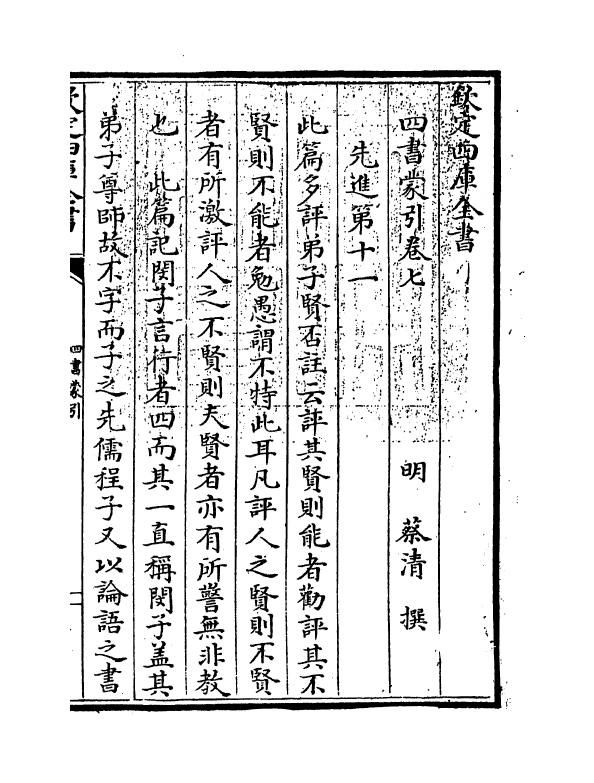 欽定四庫全書
四書蒙引卷七
明 蔡清 撰
先進第十一
此篇多評弟子賢否註云評其賢則能者勸評其不
賢則不能者勉愚謂不特此耳凡評人之賢則不賢
者有所激評人之不賢則夫賢者亦有所警無非教
也 此篇記閔子言行者四而其一直稱閔子盖其
弟子尊師故不字而子之先儒程子又以論語之書
欽定四庫全書
四書蒙引
一